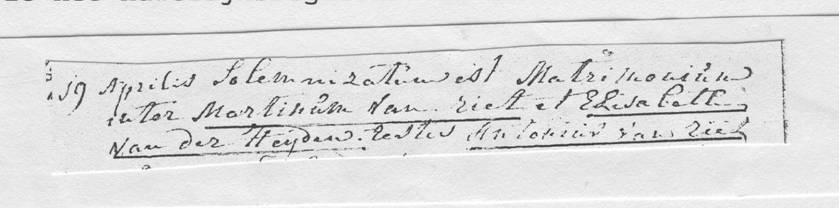 19 Aprilis Solemnizatum est Matrimonium
inter Martinum Van Riet et Elisabeth
Van der Heyden testes Antonius Van Riet